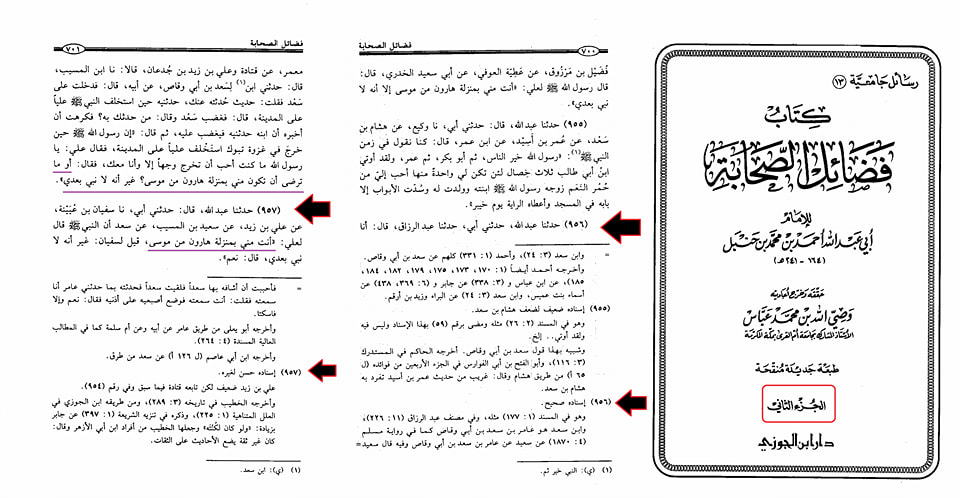 رسائل جامعية (١٣)
كتاب
فضائل الصحابة
للإمام
أبي عبد الله أحمد بن محمد بن حنبل
(١٦٤ - ٢٤١هـ)
حققه وخرج أحاديثه
وصي الله بن محمد عباس
الأستاذ المشارك بجامعة أم القرى بمكة المكرمة
طبعة جديدة منقحة
الجزء الثاني
دار ابن الجوزي
فضائل الصحابة
٧٠٠
فُضَيْل بن مَرْزوق، عن عَطِيّة العوفي، عن أبي سعيد الخدري، قال:
قال رسول الله ﷺ لعلي: «أنت مني بمنزلة هارون من موسى إلا أنه لا
نبي بعدي».
(٩٥٥) حدثنا عبدالله، قال: حدثني أبي، نا وكيع، عن هشام بن
سَعْد، عن عُمر بن أُسَيْد، عن ابن عمر، قال: كنا نقول في زمن
النبي ﷺ(١): «رسول الله خير الناس، ثم أبو بكر، ثم عمر، ولقد أوتي
ابنُ أبي طالب ثلاث خِصال لئن تكن لي واحدةٌ منها أحب إليّ من
حُمْر النَعَم زوجه رسول الله ﷺ ابنته وولدت له وسُدّت الأبواب إلا
بابه في المسجد وأعطاه الراية يوم خيبر».
(٩٥٦) حدثنا عبدالله، حدثني أبي، حدثنا عبد الرزاق، قال: أنا
= وابن سعد (٣: ٢٤)، وأحمد (١: ٣٣١) كلهم عن سعد بن أبي وقاص.
وأخرجه أحمد أيضاً (١: ١٧٠، ١٧٣، ١٧٥، ١٧٩، ١٨٢، ١٨٤،
١٨٥)، عن ابن عباس و (٣: ٣٣٨) عن جابر و (٦: ٣٦٩، ٤٣٨) عن
أسماء بنت عميس، وابن سعد (٣: ٢٤) عن البراء وزيد بن أرقم.
(٩٥٥) إسناده ضعيف لضعف هشام بن سعد.
وهو في المسند (٢: ٢٦) مثله ومضى برقم (٥٩) بهذا الإسناد وليس فيه
ولقد أوتي.. إلخ.
وشبيه بهذا قول سعد بن أبي وقاص. أخرجه الحاكم في المستدرك
(٣: ١١٦)، وأبو الفتح بن أبي الفوارس في الجزء الأربعين من فوائده (ل
٦٥ أ) من طريق هشام وقال: غريب من حديث عمر بن أسيد تفرد به
هشام بن سعد.
(٩٥٦) إسناده صحيح.
وهو في المسند (١: ١٧٧) مثله، وفي مصنف عبد الرزاق (١١: ٢٢٦)،
وابن سعد هو عامر بن سعد بن أبي وقاص كما في رواية مسلم
(٤: ١٨٧٠) عن سعيد عن عامر بن سعد بن أبي وقاص وفيه قال سعيد=
(١) (ي): النبي خير ثم.
فضائل الصحابة
٧٠١
معمر، عن قتادة وعلي بن زيد بن جُدعان، قالا: نا ابن المسيب،
قال: حدثني ابن(١) لِسَعد بن أبي وقاص، عن أبيه، قال: فدخلت على
سَعْد فقلت: حديث حُدثته عنك، حدثنيه حين استخلف النبي ﷺ علياً
على المدينة، قال: فغضب سَعْد وقال: من حدثك به؟ فكرهت أن
أخبره أن ابنه حدثنيه فيغضب عليه، ثم قال: «إن رسول الله ﷺ حين
خرج في غزوة تبوك استَخْلف علياً على المدينة، فقال علي: يا
رسول الله ما كنت أحب أن تخرج وجهاً إلا وأنا معك، فقال: أو ما
ترضى أن تكون مني بمنزلة هارون من موسى؟ غير أنه لا نبي بعدي».
(٩٥٧) حدثنا عبدالله، قال: حدثني أبي، نا سفيان بن عُيَيْنة،
عن علي بن زيد، عن سعيد بن المسيب، عن سعد أن النبي ﷺ قال
لعلي: «أنت مني بمنزلة هارون من موسى، قيل لسفيان: غير أنه لا
نبي بعدي، قال: نعم».
= فأحببت أن أشافه بها سعداً فلقيت سعداً فحدثته بما حدثني عامر أنا
سمعته فقلت: أنت سمعته فوضع أصبعيه على أذنيه فقال: نعم وإلا
فاسكتا.
وأخرجه أبو يعلى من طريق عامر عن أبيه وعن أم سلمة كما في المطالب
العالية المسندة (٤: ٢٦٤).
وأخرجه ابن أبي عاصم (ل ١٢٦ أ) عن سعد من طرق.
(٩٥٧) إسناده حسن لغيره.
علي بن زيد ضعيف لكن تابعه قتادة فيما سبق وفي رقم (٩٥٤).
وأخرجه الخطيب في تاريخه (٣: ٢٨٩)، ومن طريقه ابن الجوزي في
العلل المتناهية (١: ٢٢٥)، وذكره في تنزيه الشريعة (١: ٣٩٧) عن جابر
بزيادة: «ولو كان لكُنْتَه» وجعلها الخطيب من أفراد ابن أبي الأزهر وقال:
كان غير ثقة يضع الأحاديث على الثقات.
(١) (ي): ابن سعد.